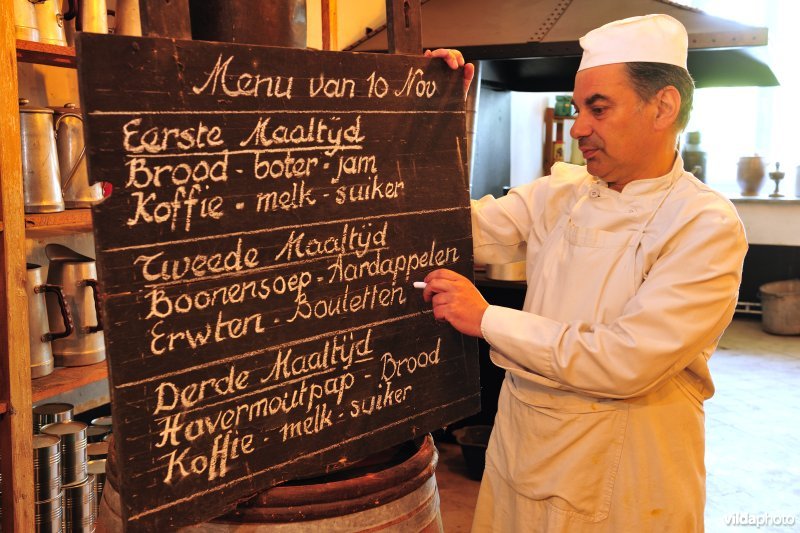 Menu van 10 Nov
Eerste Maaltijd
Brood - boter - jam
Koffie - melk - suiker
Tweede Maaltijd
Boonensoep - Aardappelen
Erwten - Bouletten
Derde Maaltijd
Havermoutpap - Brood
Koffie - melk - suiker
vildaphoto